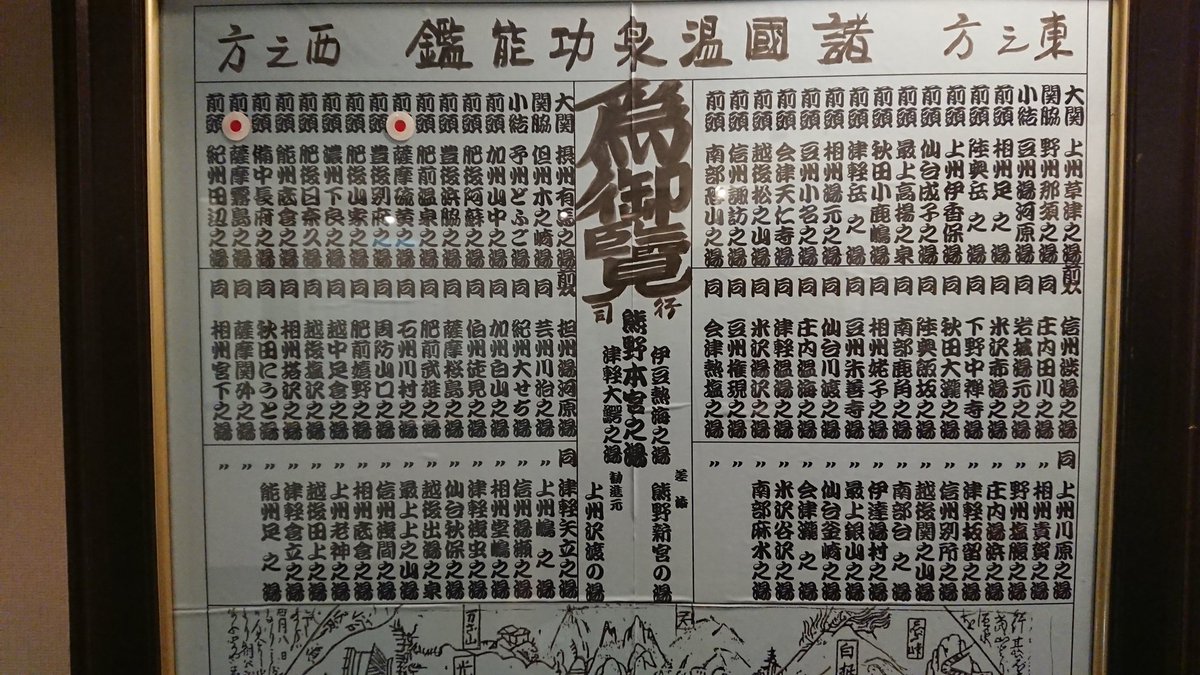 東之方
諸國温泉功能鑑
西之方
大関 上州草津之湯
関脇 野州那須之湯
小結 豆州湯河原湯
前頭 相州足之湯
前頭 陸奥岳之湯
前頭 上州伊香保湯
前頭 仙台成子之湯
前頭 最上高揚之泉
前頭 秋田小鹿嶋湯
前頭 津軽岳之湯
前頭 相州湯元之湯
前頭 豆州小名之湯
前頭 会津天仁寺湯
前頭 越後松之山湯
前頭 信州諏訪之湯
前頭 南部恐山之湯
前頭 信州渋湯之湯
同 庄内田川之湯
同 岩城湯元之湯
同 米沢赤湯之湯
同 下野中禅寺湯
同 秋田大瀧之湯
同 陸奥飯坂之湯
同 南部鹿角之湯
同 相州姥子之湯
同 豆州朱善寺湯
同 仙台川渡之湯
同 庄内温海之湯
同 津軽温湯之湯
同 米沢湯沢之湯
同 豆州権現之湯
同 会津熱塩之湯
同 上州川原之湯
〃 相州貴賀之湯
〃 野州塩腹之湯
〃 庄内湯浜之湯
〃 津軽抜留之湯
〃 信州別所之湯
〃 越後関之山湯
〃 南部台之湯
〃 伊達湯村之湯
〃 最上銀山之湯
〃 仙台釜崎之湯
〃 会津瀧之湯
〃 米沢谷沢之湯
〃 南部麻水之湯
為御覧
行司
伊豆熱海之湯
熊野本宮之湯
津軽大鰐之湯
差添
熊野新宮の湯
勧進元
上州沢渡の湯
大関 摂州有馬之湯
関脇 但州木之崎湯
小結 予州どふご湯
前頭 加州山中之湯
前頭 肥後阿蘇之湯
前頭 豊後浜脇之湯
前頭 肥前温泉之湯
前頭 薩摩硫黄之湯
前頭 豊後別府之湯
前頭 肥後山家之湯
前頭 濃州下良之湯
前頭 肥後日奈久湯
前頭 能州底倉之湯
前頭 備中長府之湯
前頭 薩摩霧島之湯
前頭 紀州田辺之湯
前頭 担州湯河原湯
同 芸州川治之湯
同 紀州大せち湯
同 加州白山之湯
同 伯州徒見之湯
同 薩摩桜島之湯
同 肥前武雄之湯
同 石州川村之湯
同 周防山口之湯
同 肥前嬉野之湯
同 越中足倉之湯
同 越後湯沢之湯
同 相州塔沢之湯
同 秋田にうと湯
同 薩摩関外之湯
同 相州宮下之湯
同 津軽矢立之湯
〃 上州嶋之湯
〃 信州湯瀬之湯
〃 相州堂嶋之湯
〃 津軽浅虫之湯
〃 仙台秋保之湯
〃 越後出湯之泉
〃 最上上之山湯
〃 信州浅間之湯
〃 相州底倉之湯
〃 上州老神之湯
〃 越後田上之湯
〃 津軽倉立之湯
〃 能州足之湯